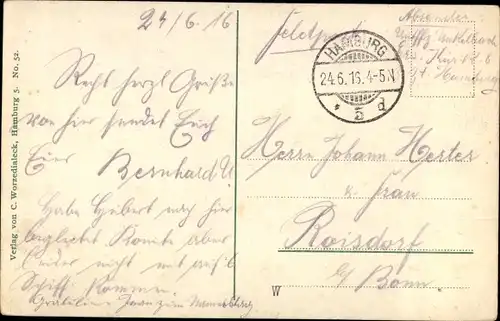 24/6.16
Feldpost
Absender
Hamburg
HAMBURG
24.6.16.4-5N
* 5 d
Recht herzl Grüße
von hier sendet Euch
Euer Bernhard
Habe Hubert nach hier
begleitet konnte aber
leider nicht mit auf's
Schiff kommen.
Gratuliere zum Namenstag
Herrn Johann Hester
u. Frau
Roisdorf
b/ Bonn.
W
Verlag von C. Worzedialeck, Hamburg 5. No. 52.